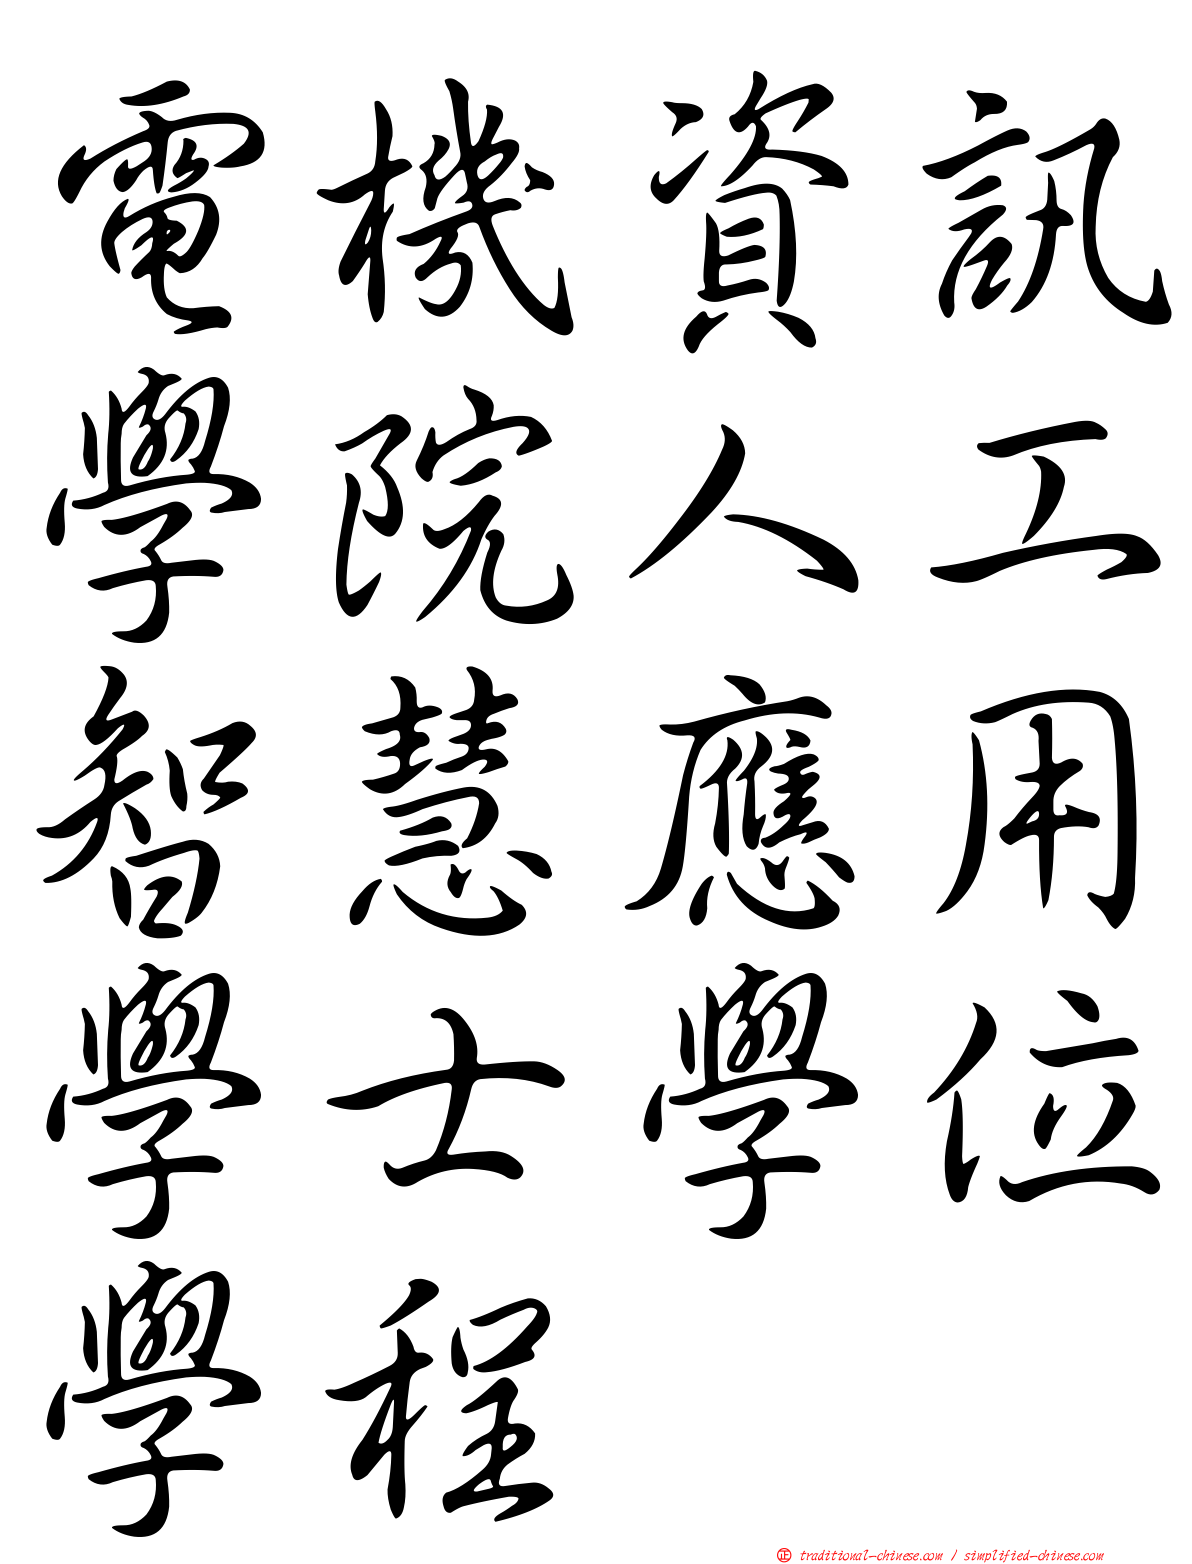 電機資訊
學院人工
智慧應用
學士學位
學程
正 traditional-chinese.com / simplified-chinese.com